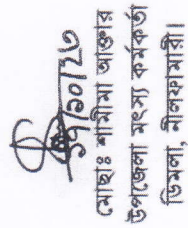 ১৭/১০/২৩
মোছাঃ শামীমা আক্তার
উপজেলা মৎস্য কর্মকর্তা
ডিমলা, নীলফামারী।